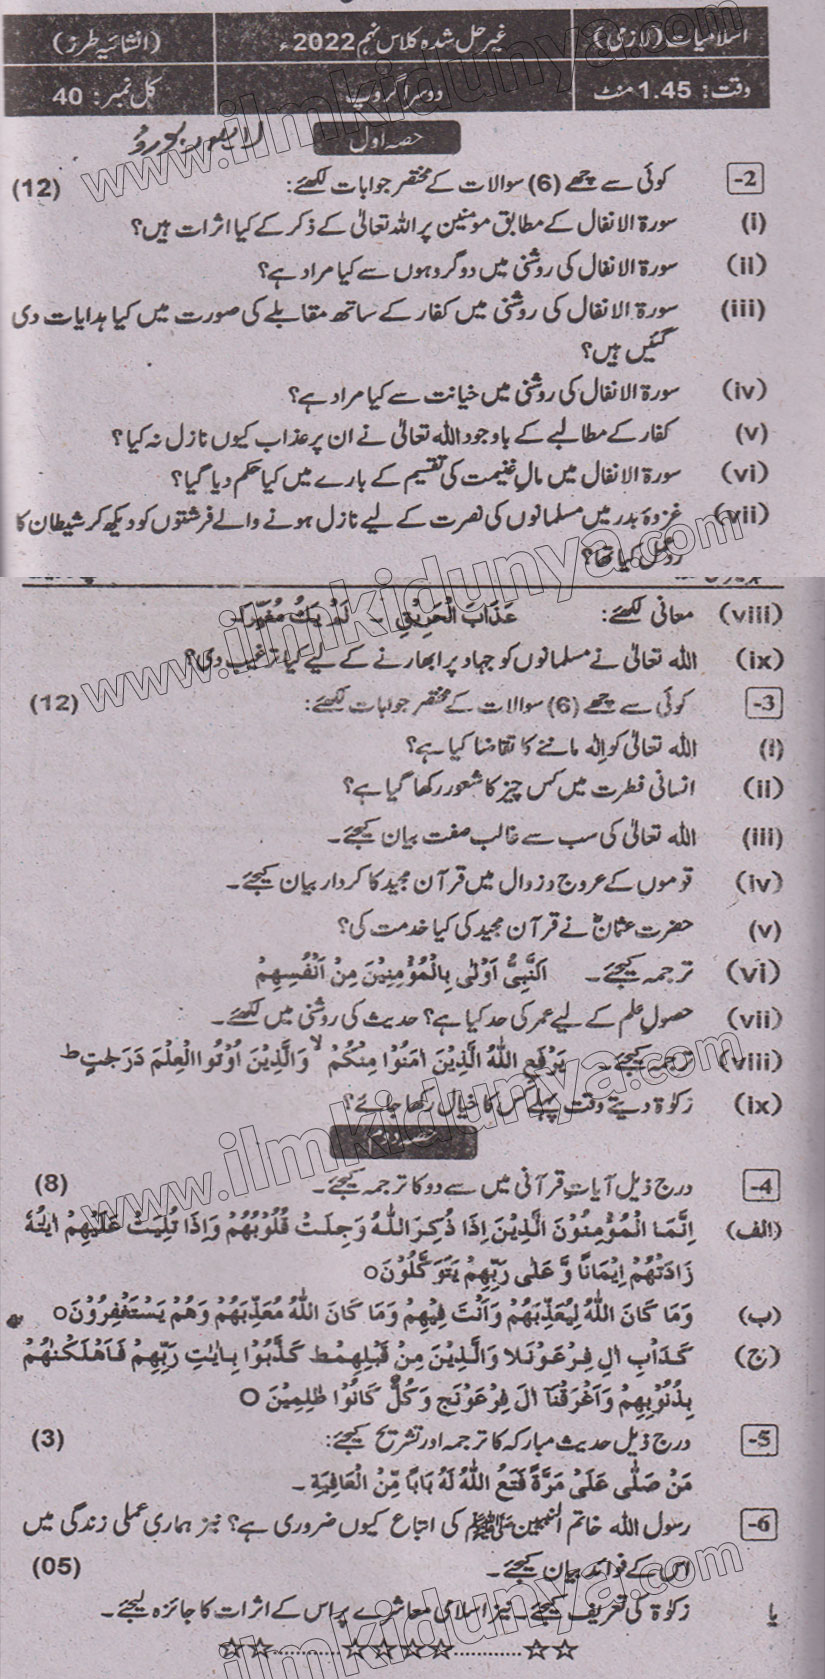 اسلامیات (لازمی) غیر حل شدہ کلاس نہم 2022ء (انشائیہ طرز)
وقت: 1.45 منٹ دوسرا گروپ کل نمبر: 40
حصہ اول لاہور بورڈ
2- کوئی سے چھے (6) سوالات کے مختصر جوابات لکھئے: (12)
(i) سورۃ الانفال کے مطابق مومنین پر اللہ تعالیٰ کے ذکر کے کیا اثرات ہیں؟
(ii) سورۃ الانفال کی روشنی میں دو گروہوں سے کیا مراد ہے؟
(iii) سورۃ الانفال کی روشنی میں کفار کے ساتھ مقابلے کی صورت میں کیا ہدایات دی
گئیں ہیں؟
(iv) سورۃ الانفال کی روشنی میں خیانت سے کیا مراد ہے؟
(v) کفار کے مطالبے کے باوجود اللہ تعالیٰ نے ان پر عذاب کیوں نازل نہ کیا؟
(vi) سورۃ الانفال میں مالِ غنیمت کی تقسیم کے بارے میں کیا حکم دیا گیا؟
(vii) غزوۂ بدر میں مسلمانوں کی نصرت کے لیے نازل ہونے والے فرشتوں کو دیکھ کر شیطان کا
ردِعمل کیا تھا؟
(viii) معانی لکھئے: عَذَابَ الْحَرِيْقِ - لَمْ يَكُ مُغَيِّرًا-
(ix) اللہ تعالیٰ نے مسلمانوں کو جہاد پر ابھارنے کے لیے کیا ترغیب دی؟
3- کوئی سے چھے (6) سوالات کے مختصر جوابات لکھئے: (12)
(i) اللہ تعالیٰ کو اِلٰہ ماننے کا تقاضا کیا ہے؟
(ii) انسانی فطرت میں کس چیز کا شعور رکھا گیا ہے؟
(iii) اللہ تعالیٰ کی سب سے غالب صفت بیان کیجئے۔
(iv) قوموں کے عروج و زوال میں قرآن مجید کا کردار بیان کیجئے۔
(v) حضرت عثمانؓ نے قرآن مجید کی کیا خدمت کی؟
(vi) ترجمہ کیجئے۔ اَلنَّبِيُّ اَوْلٰى بِالْمُؤْمِنِيْنَ مِنْ اَنْفُسِهِمْ
(vii) حصولِ علم کے لیے عمر کی حد کیا ہے؟ حدیث کی روشنی میں لکھئے۔
(viii) ترجمہ کیجئے۔ يَرْفَعِ اللّٰهُ الَّذِيْنَ اٰمَنُوْا مِنْكُمْ ۙ وَالَّذِيْنَ اُوْتُوا الْعِلْمَ دَرَجٰتٍ ط
(ix) زکوٰۃ دیتے وقت پہلے کس کا خیال رکھا جائے؟
حصہ دوم
4- درج ذیل آیاتِ قرآنی میں سے دو کا ترجمہ کیجئے۔ (8)
(الف) اِنَّمَا الْمُؤْمِنُوْنَ الَّذِيْنَ اِذَا ذُكِرَ اللّٰهُ وَجِلَتْ قُلُوْبُهُمْ وَاِذَا تُلِيَتْ عَلَيْهِمْ اٰيٰتُهٗ
زَادَتْهُمْ اِيْمَانًا وَّ عَلٰى رَبِّهِمْ يَتَوَكَّلُوْنَ○
(ب) وَمَا كَانَ اللّٰهُ لِيُعَذِّبَهُمْ وَاَنْتَ فِيْهِمْ وَمَا كَانَ اللّٰهُ مُعَذِّبَهُمْ وَهُمْ يَسْتَغْفِرُوْنَ○
(ج) كَدَاْبِ اٰلِ فِرْعَوْنَ لا وَالَّذِيْنَ مِنْ قَبْلِهِمْ ط كَذَّبُوْا بِاٰيٰتِ رَبِّهِمْ فَاَهْلَكْنٰهُمْ
بِذُنُوْبِهِمْ وَاَغْرَقْنَآ اٰلَ فِرْعَوْنَ ج وَكُلٌّ كَانُوْا ظٰلِمِيْنَ ○
5- درج ذیل حدیث مبارکہ کا ترجمہ اور تشریح کیجئے: (3)
مَنْ صَلّٰى عَلَىَّ مَرَّةً فَتَحَ اللّٰهُ لَهٗ بَابًا مِّنَ الْعَافِيَةِ -
6- رسول اللہ خاتم النبیین ﷺ کی اتباع کیوں ضروری ہے؟ نیز ہماری عملی زندگی میں
اس کے فوائد بیان کیجئے۔ (05)
یا زکوٰۃ کی تعریف کیجئے۔ نیز اسلامی معاشرے پر اس کے اثرات کا جائزہ لیجئے۔
www.ilmkidunya.com
www.ilmkidunya.com
www.ilmkidunya.com
www.ilmkidunya.com